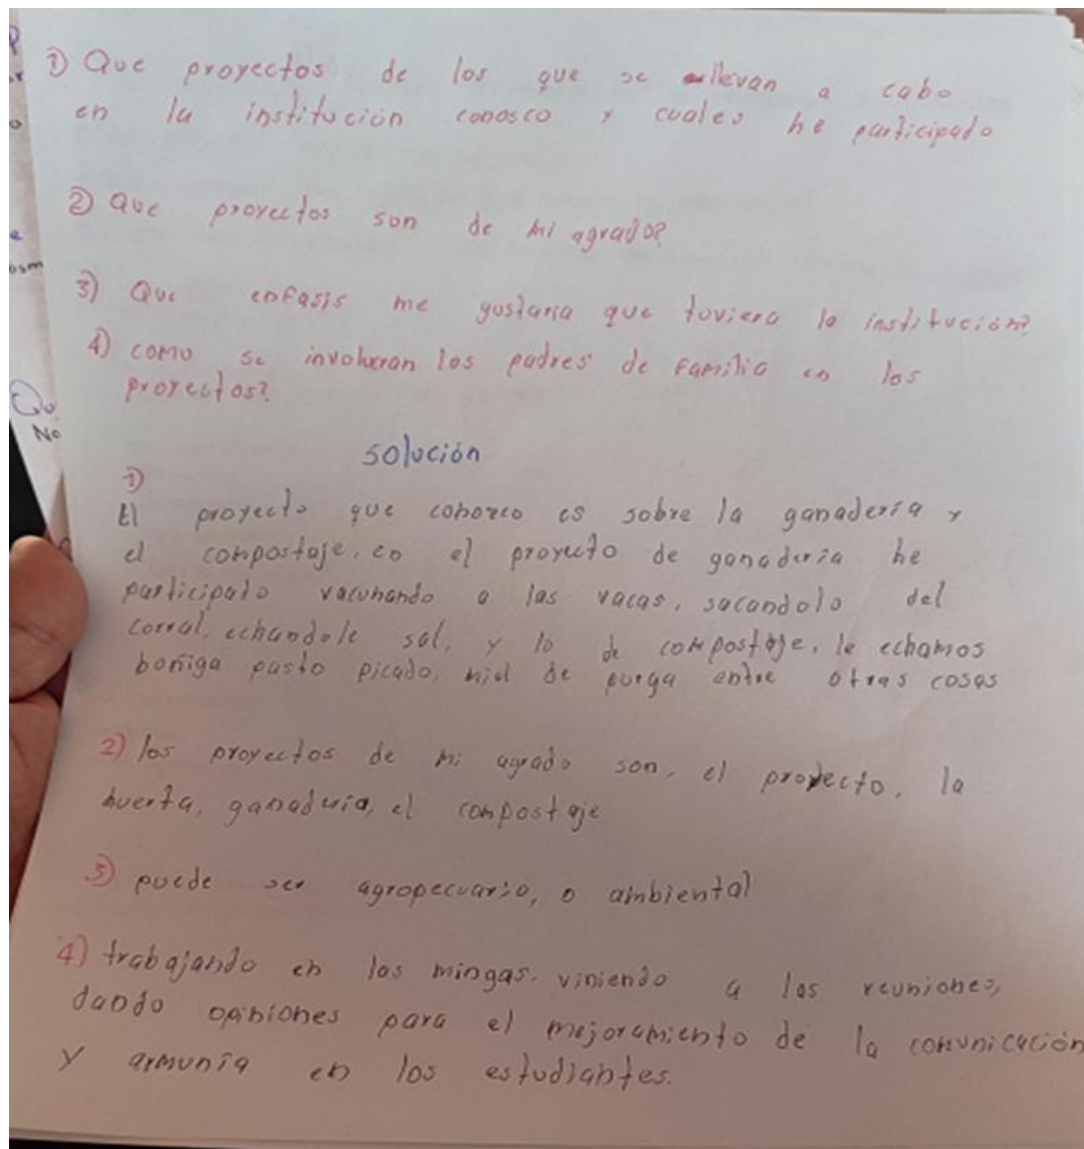 1) Que proyectos de los que se llevan a cabo
en la institución conosco y cuales he participado
2) Que proyectos son de mi agrado?
3) Que enfasis me gustaria que tuviera la institución?
4) como se involucran los padres de familia en los
proyectos?
solución
1)
El proyecto que conozco es sobre la ganadería y
el compostaje, en el proyecto de ganaderia he
participado vacunando a las vacas, sacandolo del
corral, echandole sal, y lo de compostaje, le echamos
boñiga pasto picado, miel de purga entre otras cosas
2) los proyectos de mi agrado son, el proyecto, la
huerta, ganaderia, el compostaje
3) puede ser agropecuario, o ambiental
4) trabajando en las mingas, viniendo a las reuniones,
dando opiniones para el mejoramiento de la comunicación
y armunía en los estudiantes.